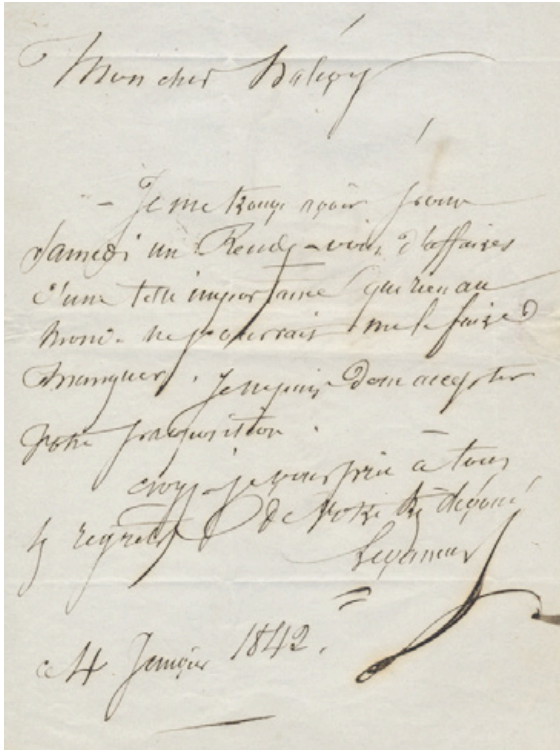 Mon cher Halevy
- Je me trouve avoir pour
Samedi un Rendez-vous d'affaires
d'une telle importance que rien au
monde ne pourrait me le faire
manquer. Je ne puis donc accepter
votre proposition.
croyez-je vous prie à tous
les regrets De votre dévoué
ce 4 Janvier 1842.